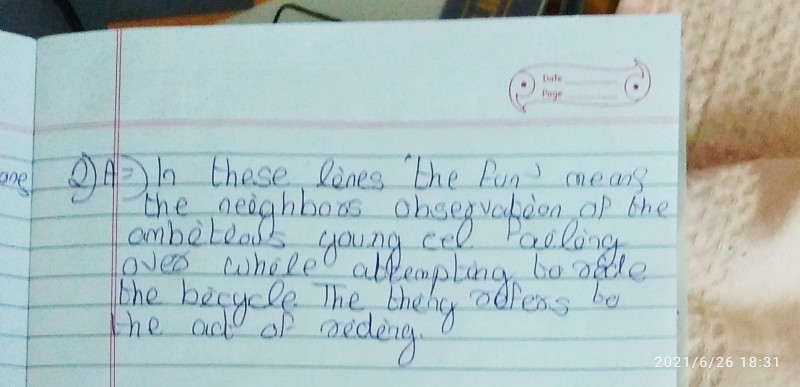 Date
Page
one
2) A=) In these lines 'the fun' means
the neighbors observation of the
ambitious young cel failing
over while attempting to ride
the bicycle. The theng refers to
the act of riding.
2021/6/26 18:31